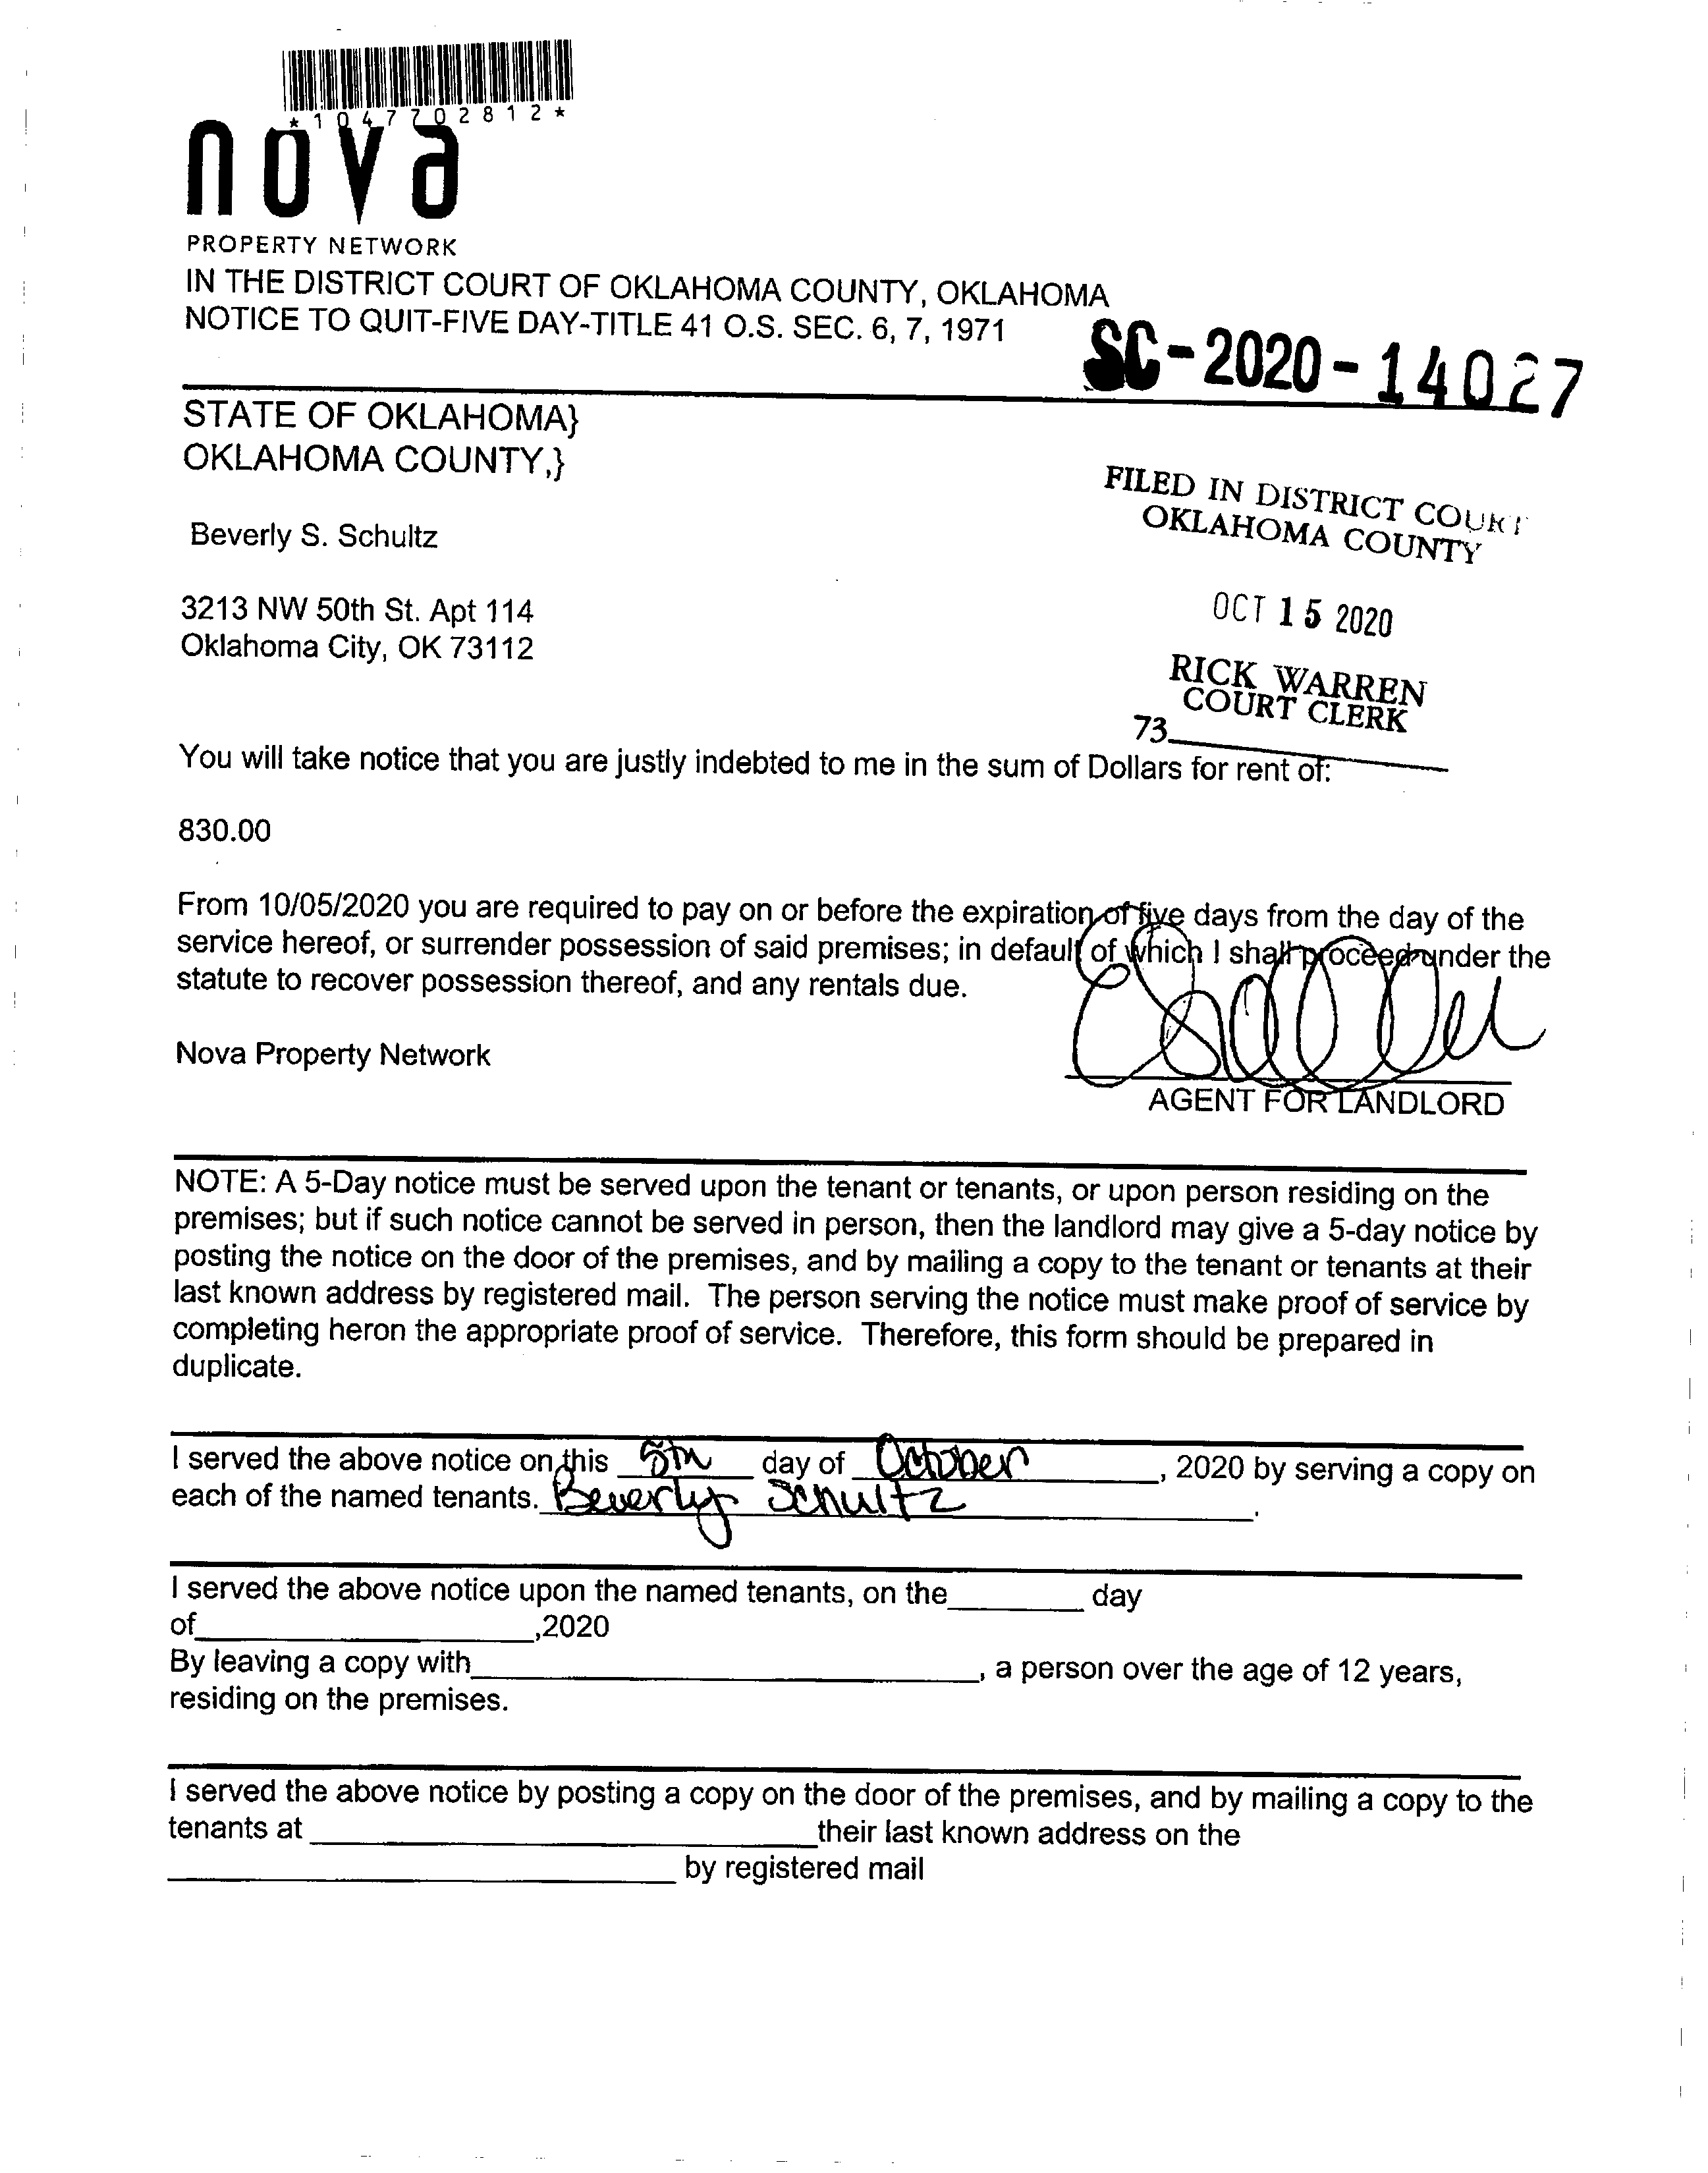 *1047702812*
nova
PROPERTY NETWORK
IN THE DISTRICT COURT OF OKLAHOMA COUNTY, OKLAHOMA
NOTICE TO QUIT-FIVE DAY-TITLE 41 O.S. SEC. 6, 7, 1971
SC-2020-14027
STATE OF OKLAHOMA}
OKLAHOMA COUNTY,}
FILED IN DISTRICT COURT
OKLAHOMA COUNTY
Beverly S. Schultz
3213 NW 50th St. Apt 114
Oklahoma City, OK 73112
OCT 15 2020
RICK WARREN
COURT CLERK
73
You will take notice that you are justly indebted to me in the sum of Dollars for rent of:
830.00
From 10/05/2020 you are required to pay on or before the expiration of five days from the day of the
service hereof, or surrender possession of said premises; in default of which I shall proceed under the
statute to recover possession thereof, and any rentals due.
Nova Property Network
AGENT FOR LANDLORD
NOTE: A 5-Day notice must be served upon the tenant or tenants, or upon person residing on the
premises; but if such notice cannot be served in person, then the landlord may give a 5-day notice by
posting the notice on the door of the premises, and by mailing a copy to the tenant or tenants at their
last known address by registered mail. The person serving the notice must make proof of service by
completing heron the appropriate proof of service. Therefore, this form should be prepared in
duplicate.
I served the above notice on this 5th day of October, 2020 by serving a copy on
each of the named tenants. Beverly Schultz.
I served the above notice upon the named tenants, on the________ day
of____________________,2020
By leaving a copy with______________________________, a person over the age of 12 years,
residing on the premises.
I served the above notice by posting a copy on the door of the premises, and by mailing a copy to the
tenants at ______________________________their last known address on the
______________________________ by registered mail